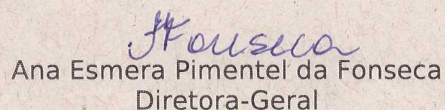 Fonseca
Ana Esmera Pimentel da Fonseca
Diretora-Geral